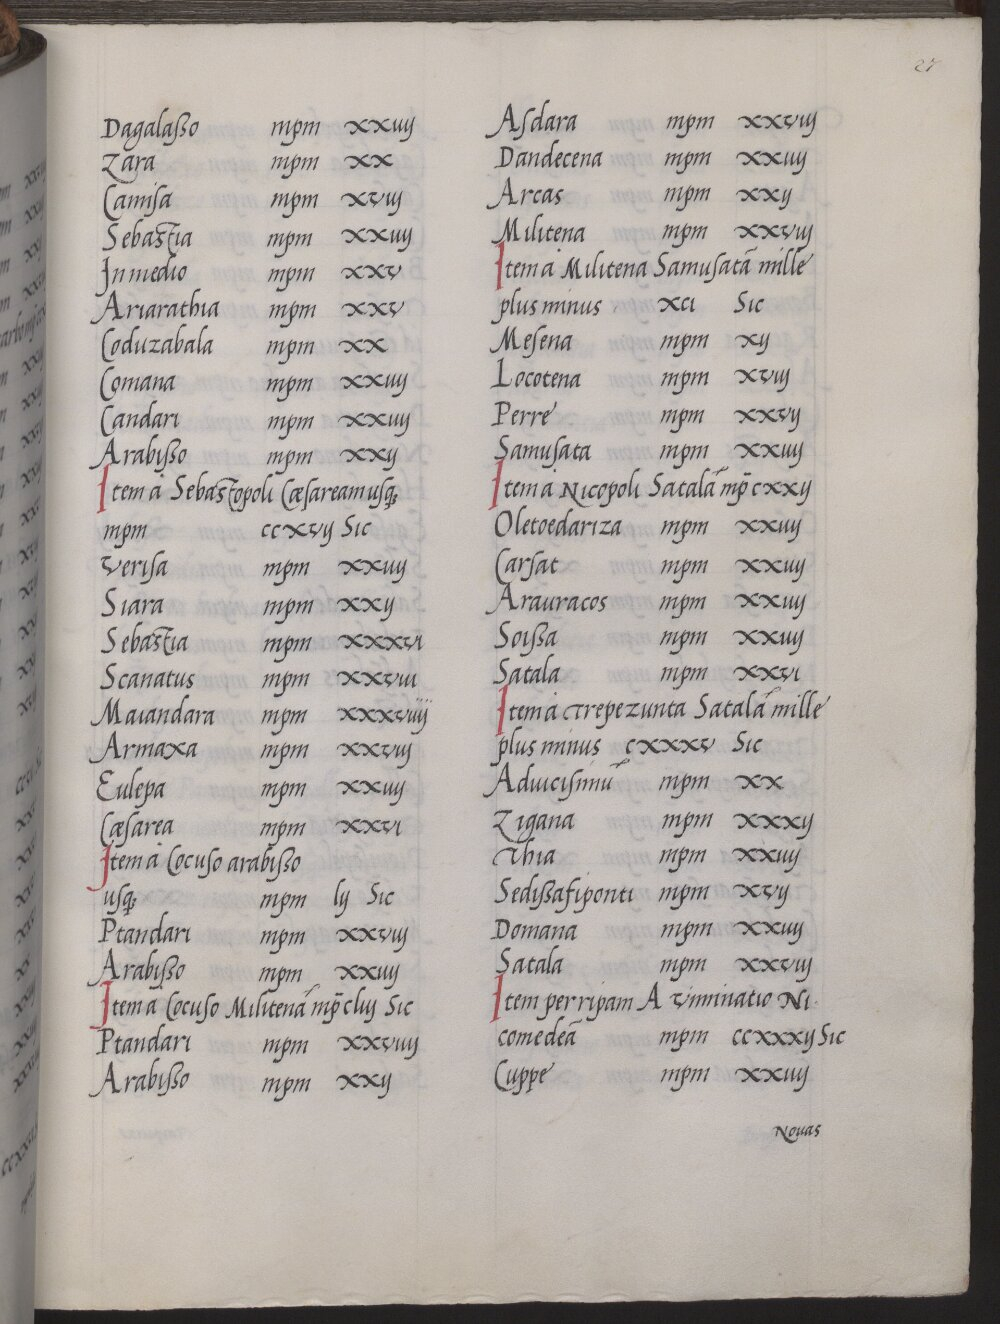 27
Dagalaßo mpm xxiiij
Zara mpm xx
Camisa mpm xviij
Sebastia mpm xxiiij
In medio mpm xxv
Ariarathia mpm xxv
Coduzabala mpm xx
Comana mpm xxiiij
Candari mpm xxiiij
Arabißo mpm xxij
Item à Sebastopoli Cæsareamusq₃
mpm ccxvij Sic
Verisa mpm xxiiij
Siara mpm xxij
Sebastia mpm xxxvi
Scanatus mpm xxviii
Maiandara mpm xxxviiij
Armaxa mpm xxviij
Eulepa mpm xxiiij
Cæsarea mpm xxvi
Item à Cocuso arabißo
usq₃ mpm lij Sic
Ptandari mpm xxviij
Arabißo mpm xxiiij
Item a Cocuso Militenã mp̃ cliij Sic
Ptandari mpm xxviiij
Arabißo mpm xxij
Asdara mpm xxviij
Dandecena mpm xxiiij
Arcas mpm xxij
Militena mpm xxviij
Item à Militena Samusatã mille
plus minus xci Sic
Mesena mpm xij
Locotena mpm xviij
Perre mpm xxvij
Samusata mpm xxiiij
Item à Nicopoli Satalã mp̃ cxxij
Oletoedariza mpm xxiiij
Carsat mpm xxiiij
Arauracos mpm xxiiij
Soißa mpm xxiiij
Satala mpm xxvi
Item à Trepezunta Satalã mille
plus minus cxxxv Sic
Aduicisimũ mpm xx
Zigana mpm xxxij
Thia mpm xxiiij
Sedißafiponti mpm xvij
Domana mpm xxiiij
Satala mpm xxviij
Item per ripam A Viminatio Ni
comedeã mpm ccxxxij Sic
Cuppe mpm xxiiij
Novas